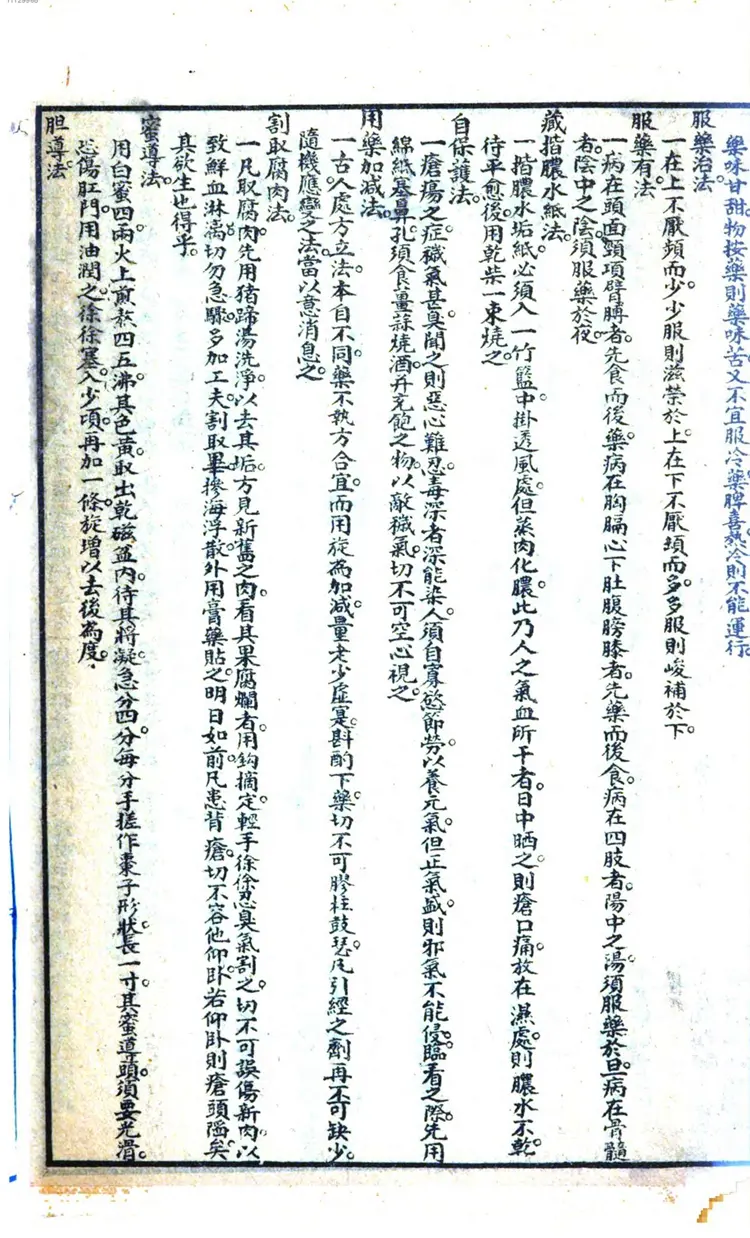 藥味甘甜物按藥則藥味苦又不宜服冷藥脾喜熱冷則不能運行
服藥治法
一在上不厭頻而少少服則滋榮於上在下不厭頻而多多服則峻補於下
服藥有法
一病在頭面頸項臂膊者先食而後藥病在胸膈心下肚腹膀膝者先藥而後食病在四肢者陽中之湯須服藥於旦病在骨髓
者陰中之陰須服藥於夜
藏揩膿水紙法
一揩膿水垢紙必須入一竹籃中掛透風處但蒸肉化膿此乃人之氣血所干者日中晒之則瘡口痛放在濕處則膿水不乾
待平愈後用乾柴一束燒之
自保護法
一瘡瘍之症穢氣甚臭聞之則惡心難忍毒深者深能染人須自寡慾節勞以養元氣但正氣盛則邪氣不能侵臨看之際先用
綿紙塞鼻孔須食薑蒜燒酒并充飽之物以敵穢氣切不可空心視之
用藥加減法
一古人處方立法本自不同藥不執方合宜而用旋為加減量老少虛寔斟酌下藥切不可膠柱鼓瑟凡引經之劑再不可缺少
隨機應變之法當以意消息之
割取腐肉法
一凡取腐肉先用猪蹄湯洗淨以去其垢方見新舊之肉看其果腐爛者用鈎摘定輕手徐徐忍臭氣割之切不可誤傷新肉以
致鮮血淋漓切勿急驟多加工夫割取畢摻海浮散外用膏藥貼之明日如前凡患背瘡切不容他仰卧若仰卧則瘡頭陷矣
其欲生也得乎
蜜導法
用白蜜四兩火上煎熬四五沸其色黃取出乾磁盆內待其將凝急分四分每分手搓作棗子形狀長一寸其蜜導頭須要光滑
恐傷肛門用油潤之徐徐塞入少頃再加一條旋增以去後為度
胆導法